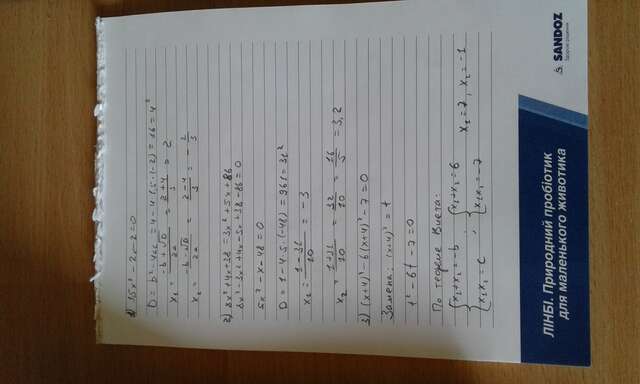 1) 1,5x² - 2x - 2 = 0
D = b² - 4ac = 4 - 4·1,5·(-2) = 16 = 4²
x₁ = (-b + √D)/2a = (2+4)/3 = 2
x₂ = (-b - √D)/2a = (2-4)/3 = -2/3
2) 8x² + 4x - 38 = 3x² + 5x +
8x² - 3x² + 4x - 5x - 38 - = 0
5x² - x - 48 = 0
D = 1 - 4·5·(-48) = 961 = 31²
x₁ = (1-31)/10 = -3
x₂ = (1+31)/10 = 32/10 = 16/5 = 3,2
3) (x+4)⁴ - 6(x+4)² - 7 = 0
Замена: (x+4)² = t
t² - 6t - 7 = 0
По теореме Виета:
{ x₁+x₂ = -b ; { x₁+x₂ = 6
{ x₁x₂ = c { x₁x₂ = -7
x₁ = 7, x₂ = -1
ЛІНБІ. Природний пробіотик
для маленького животика
SANDOZ